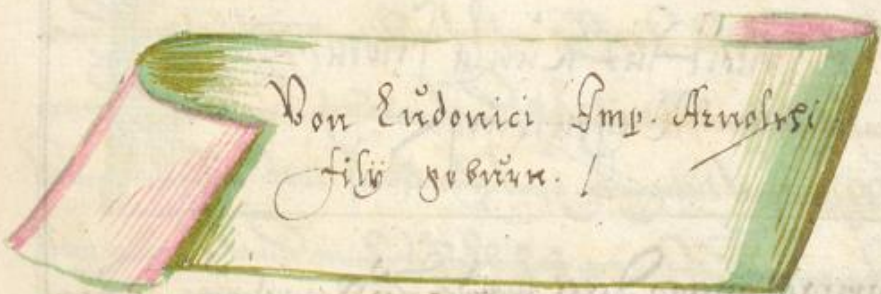 Von Ludouici Imp. Arnolphi
filij geburt. /